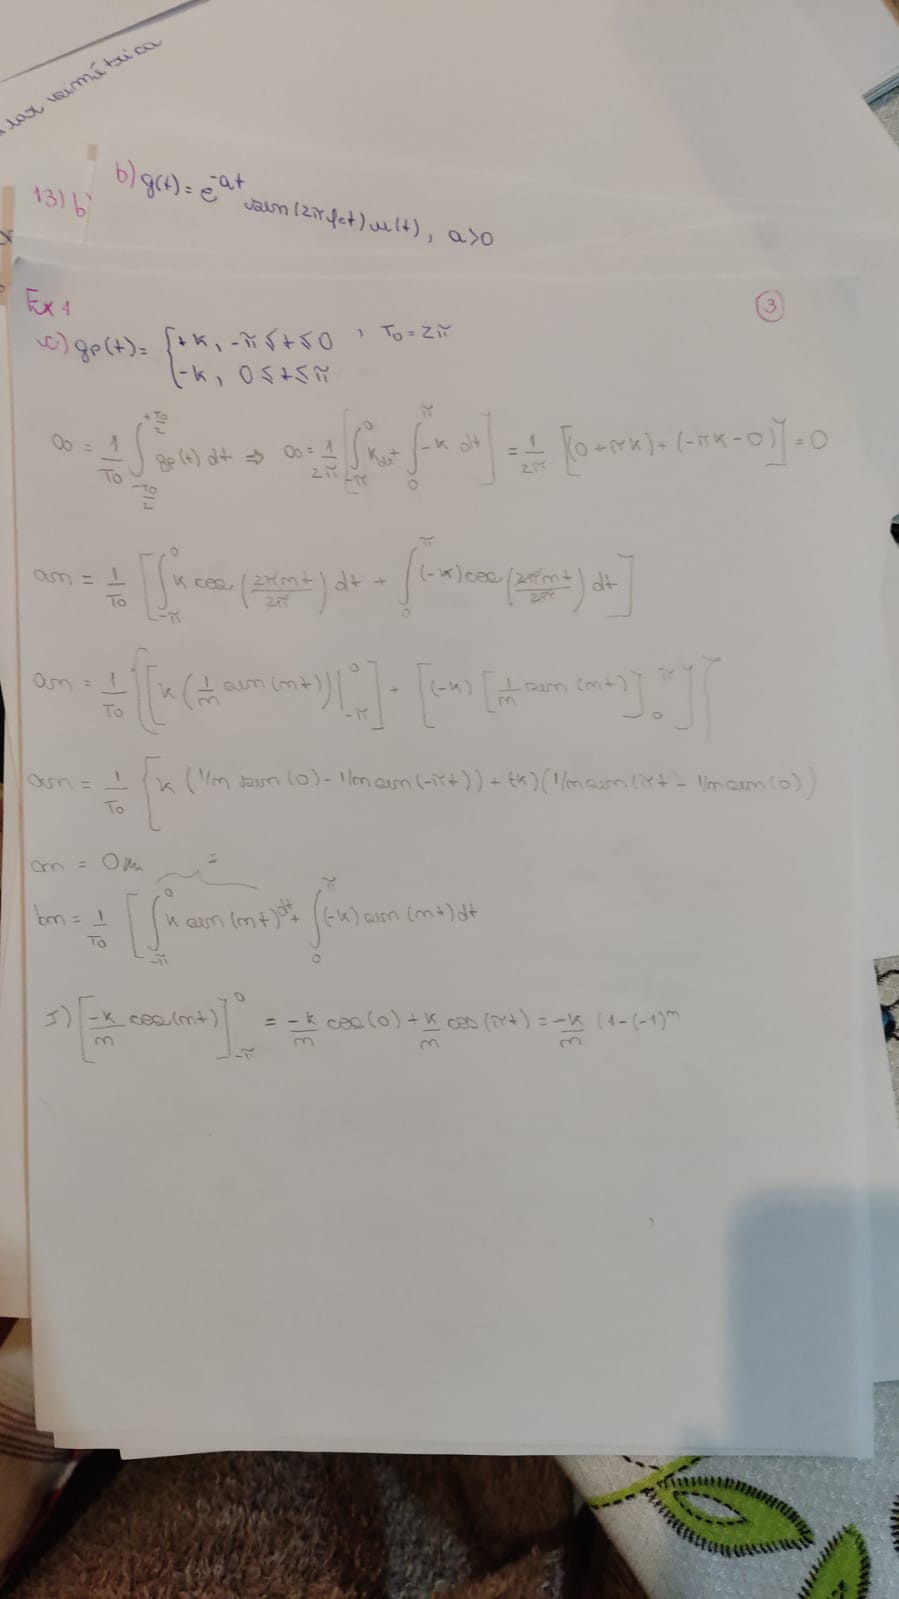 simétrica
13) b)
b) g(t) = e^-at sen(2πfct) u(t), a>0
Ex 1
3
c) gp(t) = { +k, -π ≤ t ≤ 0 , T0 = 2π
{ -k, 0 ≤ t ≤ π
a0 = 1/T0 ∫_{-T0/2}^{+T0/2} gp(t) dt ⇒ a0 = 1/2π [∫_{-π}^{0} k dt + ∫_{0}^{π} -k dt] = 1/2π [(0+πk)+(-πk-0)] = 0
an = 1/T0 [∫_{-π}^{0} k cos(2πnt/2π) dt + ∫_{0}^{π} (-k) cos(2πnt/2π) dt]
an = 1/T0 {[k (1/n sen(nt))|_{-π}^{0}] + [(-k) [1/n sen(nt)]_{0}^{π}]}
an = 1/T0 { k (1/n sen(0) - 1/n sen(-πt)) + (-k)(1/n sen(πt - 1/n sen(0))
an = 0
bn = 1/T0 [∫_{-π}^{0} k sen(nt) dt + ∫_{0}^{π} (-k) sen(nt) dt
I) [-k/n cos(nt)]_{-π}^{0} = -k/n cos(0) + k/n cos(πt) = -k/n (1-(-1)^n